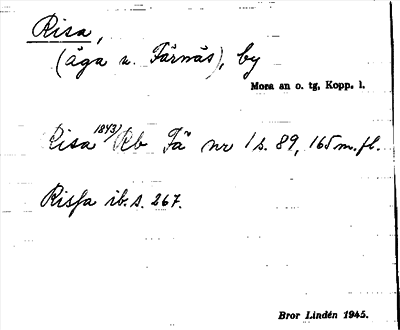 Risa,
(äga u. Färnäs), by
Mora an o. tg, Kopp. l.
Risa 1843/ Rb Fä nr 1 s. 89, 165 m.fl.
Risfa ib. s. 267.
Bror Lindén 1945.